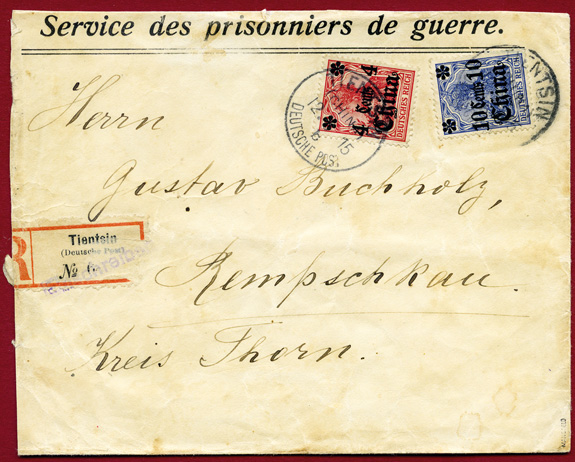 Service des prisonniers de guerre.
4 Cents 4
China
DEUTSCHES REICH
10 Cents 10
China
DEUTSCHES REICH
TIENTSIN
15
DEUTSCHE POST
Herrn
Gustav Buchholz,
R
Tientsin
(Deutsche Post)
№
Rempschkau.
Kreis Thorn.